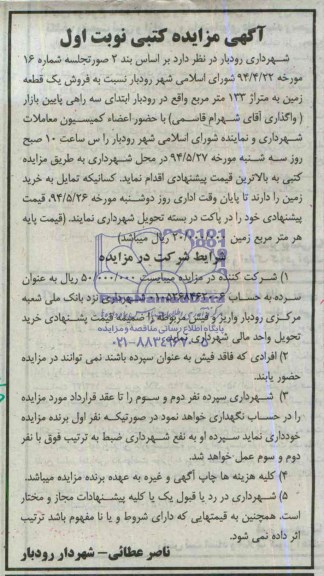 آگهی مزایده کتبی نوبت اول
شهرداری رودبار در نظر دارد بر اساس بند ۲ صورتجلسه شماره ۱۶
مورخه ۹۴/۴/۲۲ شورای اسلامی شهر رودبار نسبت به فروش یک قطعه
زمین به متراژ ۱۳۳ متر مربع واقع در رودبار ابتدای سه راهی پایین بازار
( واگذاری آقای شهرام قاسمی) با حضور اعضاء کمیسیون معاملات
شهرداری و نماینده شورای اسلامی شهر رودبار راس ساعت ۱۰ صبح
روز سه شنبه مورخه ۹۴/۵/۲۷ در محل شهرداری به طریق مزایده
کتبی به بالاترین قیمت پیشنهادی اقدام نماید. کسانیکه تمایل به خرید
زمین را دارند تا پایان وقت اداری روز دوشنبه مورخه ۹۴/۵/۲۶، قیمت
پیشنهادی خود را در پاکت در بسته تحویل شهرداری نمایند. (قیمت پایه
هر متر مربع زمین ریال میباشد)
شرایط شرکت در مزایده
۱) شرکت کننده در مزایده میبایست ۵۰/۰۰۰/۰۰۰ ریال به عنوان
سپرده به حساب شهرداری نزد بانک ملی شعبه
مرکزی رودبار واریز و فیش مربوطه را ضمیمه قیمت پشنهادی خرید
تحویل واحد مالی شهرداری
پایگاه اطلاع رسانی مناقصه و مزایده
۰۲۱-۸۸۳۴۹۶۷۰
۲) افرادی که فاقد فیش به عنوان سپرده باشند نمی توانند در مزایده
حضور یابند.
۳) شهرداری سپرده نفر دوم و سوم را تا عقد قرارداد مورد مزایده
را در حساب نگهداری خواهد نمود در صورتیکه نفر اول برنده مزایده
خودداری نماید سپرده او به نفع شهرداری ضبط به ترتیب فوق با نفر
دوم و سوم عمل خواهد شد.
۴) کلیه هزینه ها چاپ آگهی و غیره به عهده برنده مزایده میباشد.
۵) شهرداری در رد یا قبول یک یا کلیه پیشنهادات مجاز و مختار
است. همچنین به قیمتهایی که دارای شروط و یا نا مفهوم باشد ترتیب
اثر داده نمی شود.
ناصر عطائی- شهردار رودبار